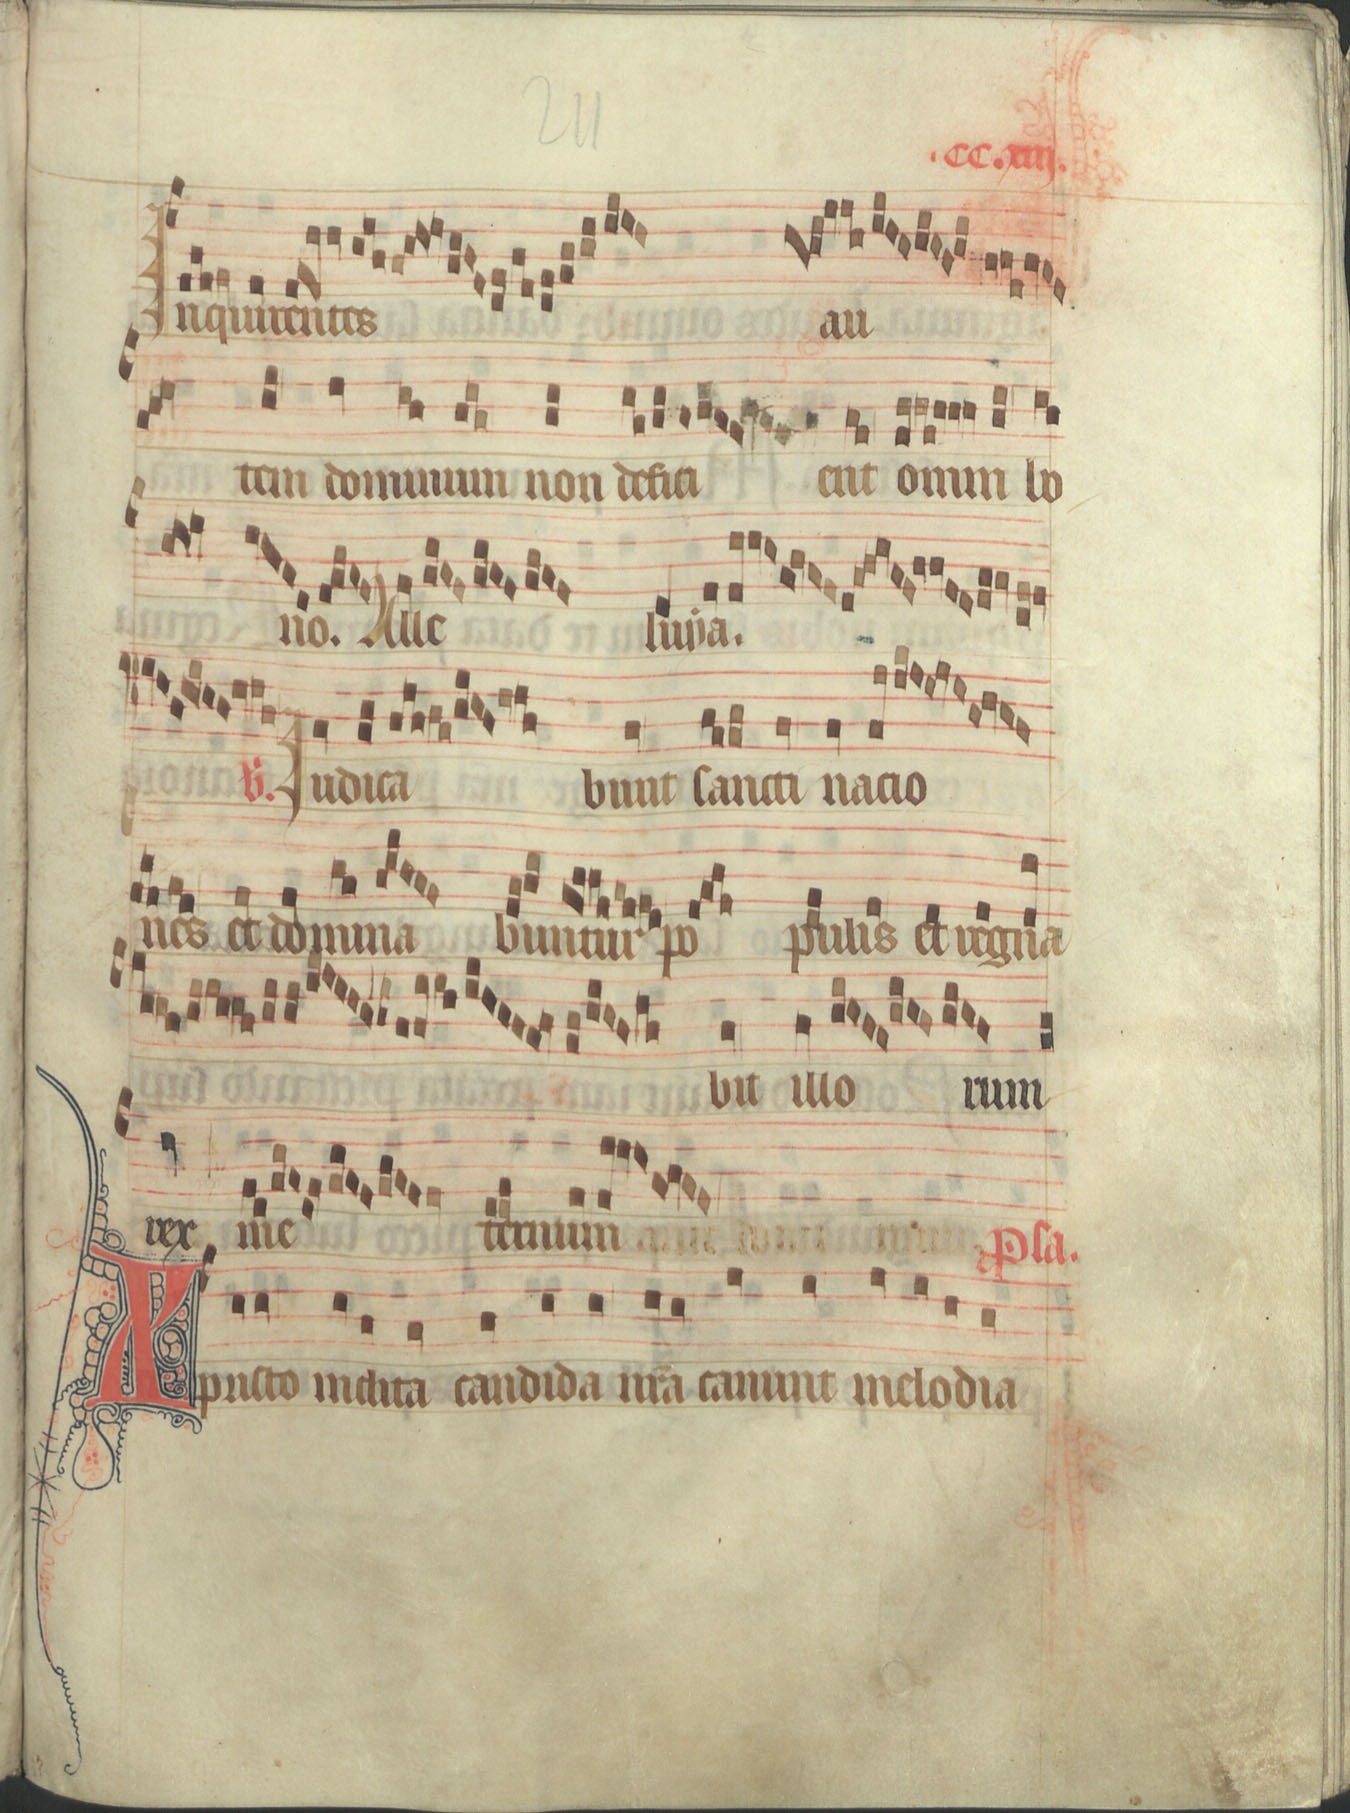 211
.CC.xiiij.
Inquirentes au
tem dominum non defici ent omni bo
no. Alle luya.
V. Judica bunt sancti nacio
nes et domina buntur po pulis et regna
bit illo rum
rex in e ternum psa.
Xpristo inclita candida nra canunt melodia